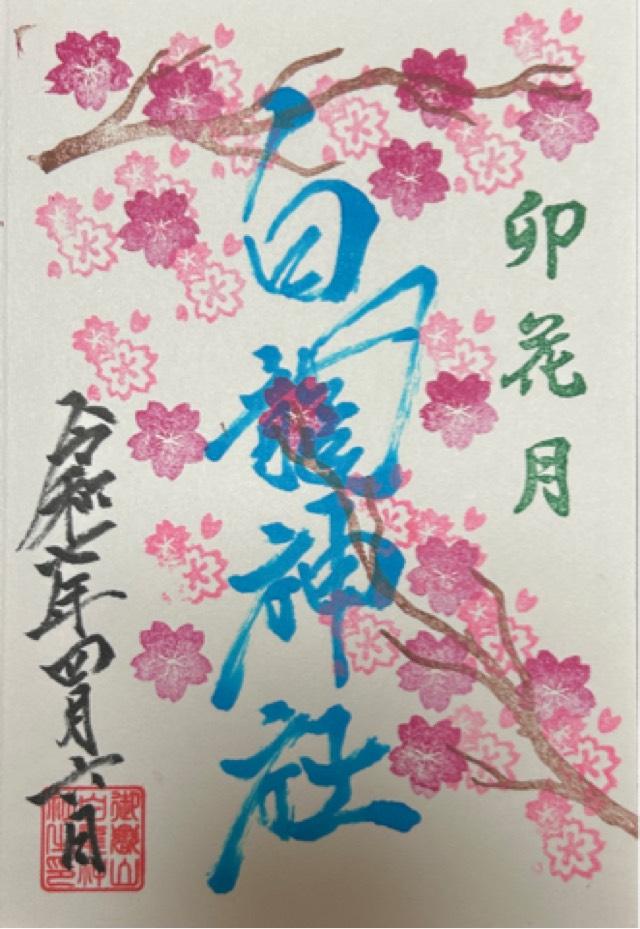 卯花月
白龍神社
令和七年四月六日
御嶽山
白龍神
社之印